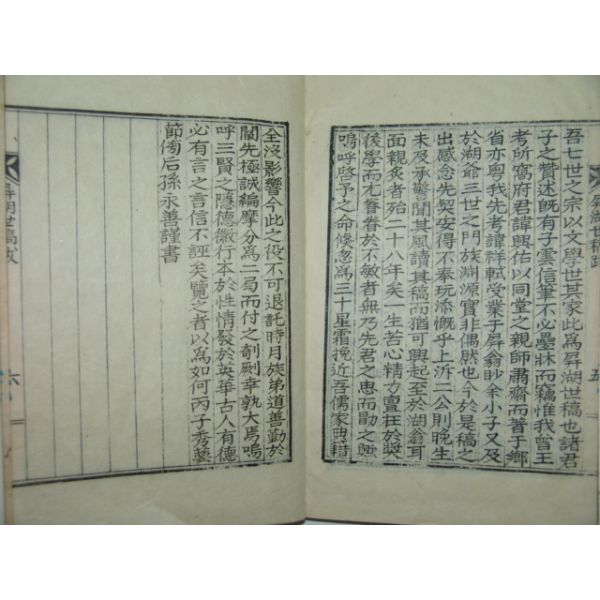 吾七世之宗以文學世其家此爲屛湖世稿也諸君
子之贊述旣有子雲信筆不必疊牀而竊惟我曾王
考所窩府君諱興佑以同堂之親師肅齋而著于鄕
省亦粤我先考諱祥軾受業于屛翁眇余小子又及
於湖爺三世之門族淵源實非偶然也今於是稿之
出感念先契安得不奉玩添慨乎上泝二公則晚生
未及承警聞其風讀其稿而猶可興起至於湖翁耳
面親炙者殆二十八年矣一生苦心精力賣在於奬
後學而尤眷眷於不敏者無乃先君之惠而勖之與
嗚呼啓予之命倏忽爲三十星霜挽近吾儒家典籍
屛湖世稿跋
五
全沒影響今此之役不可退託時月族弟道善勤於
閣先極誠編摩分爲二局而付之剞劂幸孰大焉嗚
呼三賢之隱德徽行本於性情發於英華古人有德
必有言之言信不誣矣覽之者以爲如何丙子秀葽
節傍后孫永善謹書
屛湖世稿跋
六